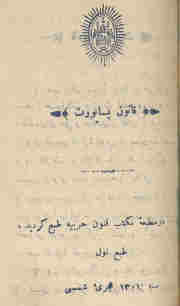 قانون پاسپورت
درمطبعهٔ مکتب فنون حربیه طبع گردید .
طبع اول
۱۳۰۱ هجری شمسی